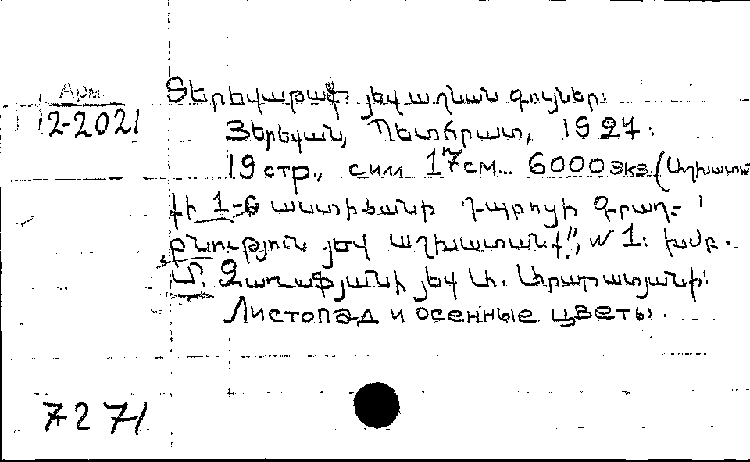 Арм.
12-2021
Տերեվաթափ յեվ աշնան գույներ:
Յերեվան, Պետհրատ, 1927:
19 стр., с илл 17 см... 6000 экз (Աշխատան
քի 1-6 աստիճանի Դպրոցի Գրադ-
քնություն յեվ աշխատանք", № 1: խմբ.
Մ.
յեվ
Листопад и осенные цветы.
7271